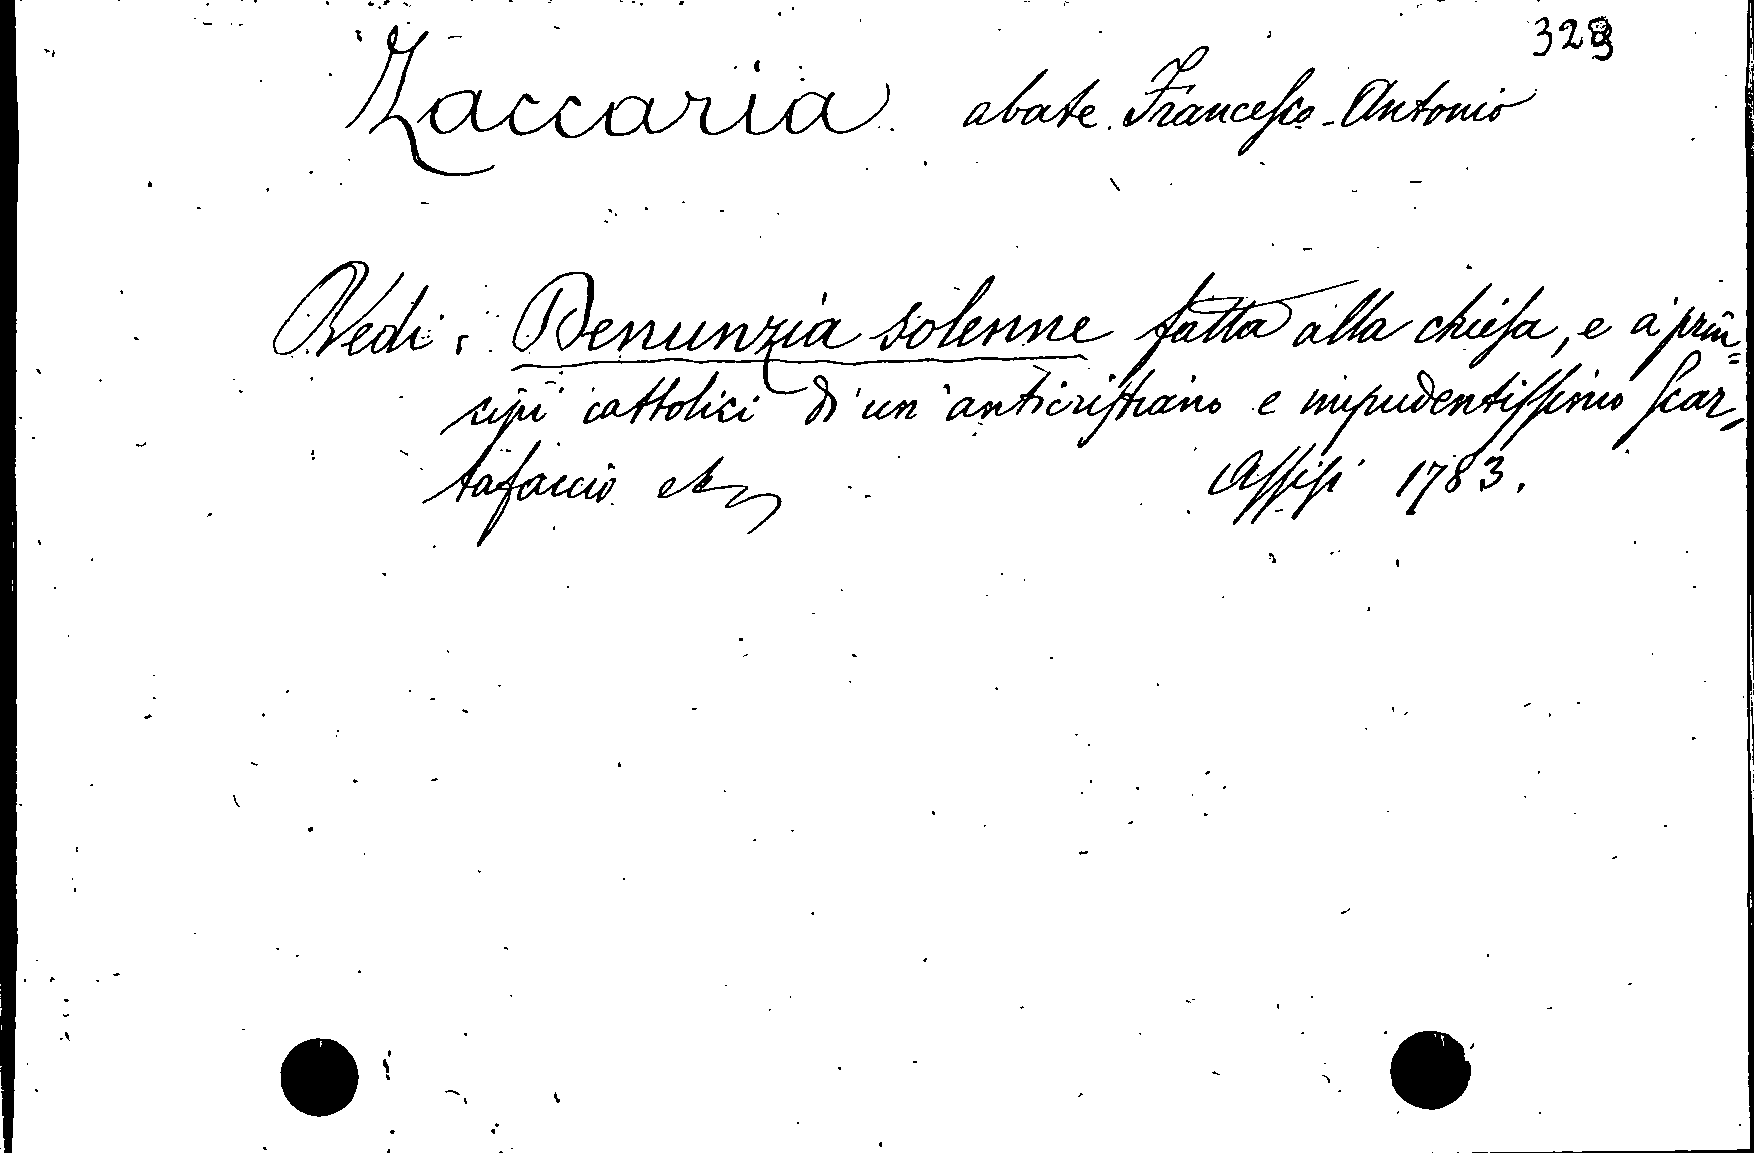 329
Zaccaria abate Francesco Antonio
Vedi: Denunzia solenne fatta alla chiesa, e a' prin=
cipi cattolici di un anticristiano e impudentissimo scar=
tafaccio etc Assisi 1783.